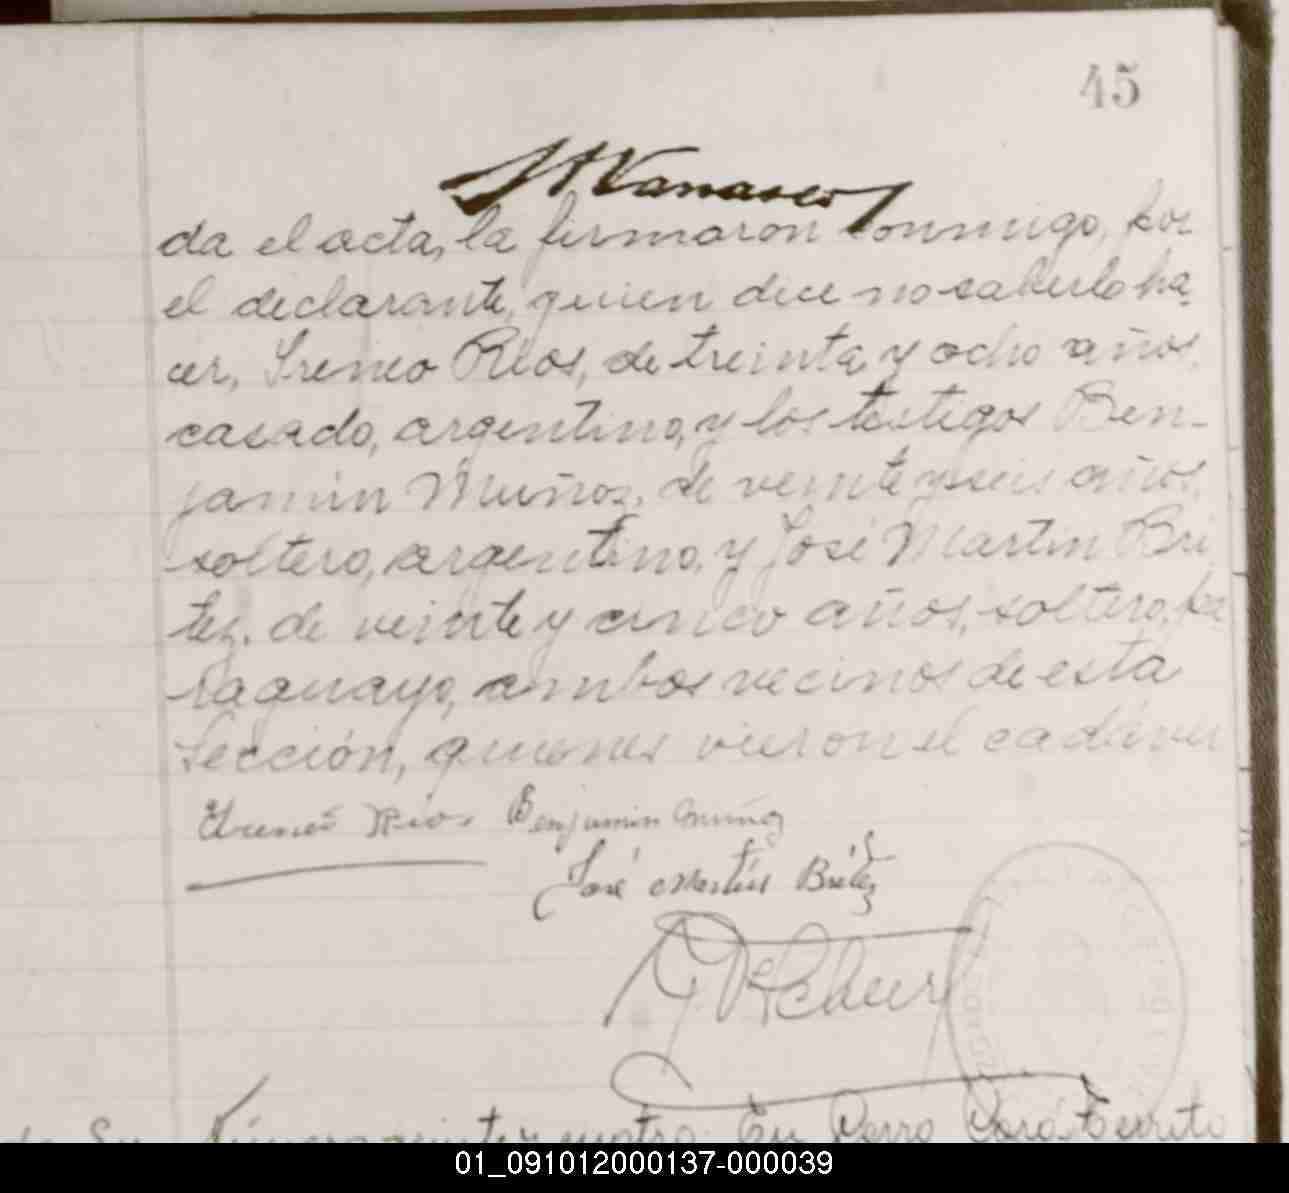 45
da el acta, la firmaron conmigo, por
el declarante, quien dice no saberlo ha-
cer, Ireneo Rios, de treinta y ocho años,
casado, argentino, y los testigos Ben-
jamin Muñoz, de veinte y seis años,
soltero, argentino, y José Martin Bri
tez, de veinte y cinco años, soltero, pa
raguayo, ambos vecinos de esta
Sección, quienes vieron el cadáver
Ireneo Rios Benjamin Muñoz
José Martín Britez
En Cerro Corá Territo
01_091012000137-000039